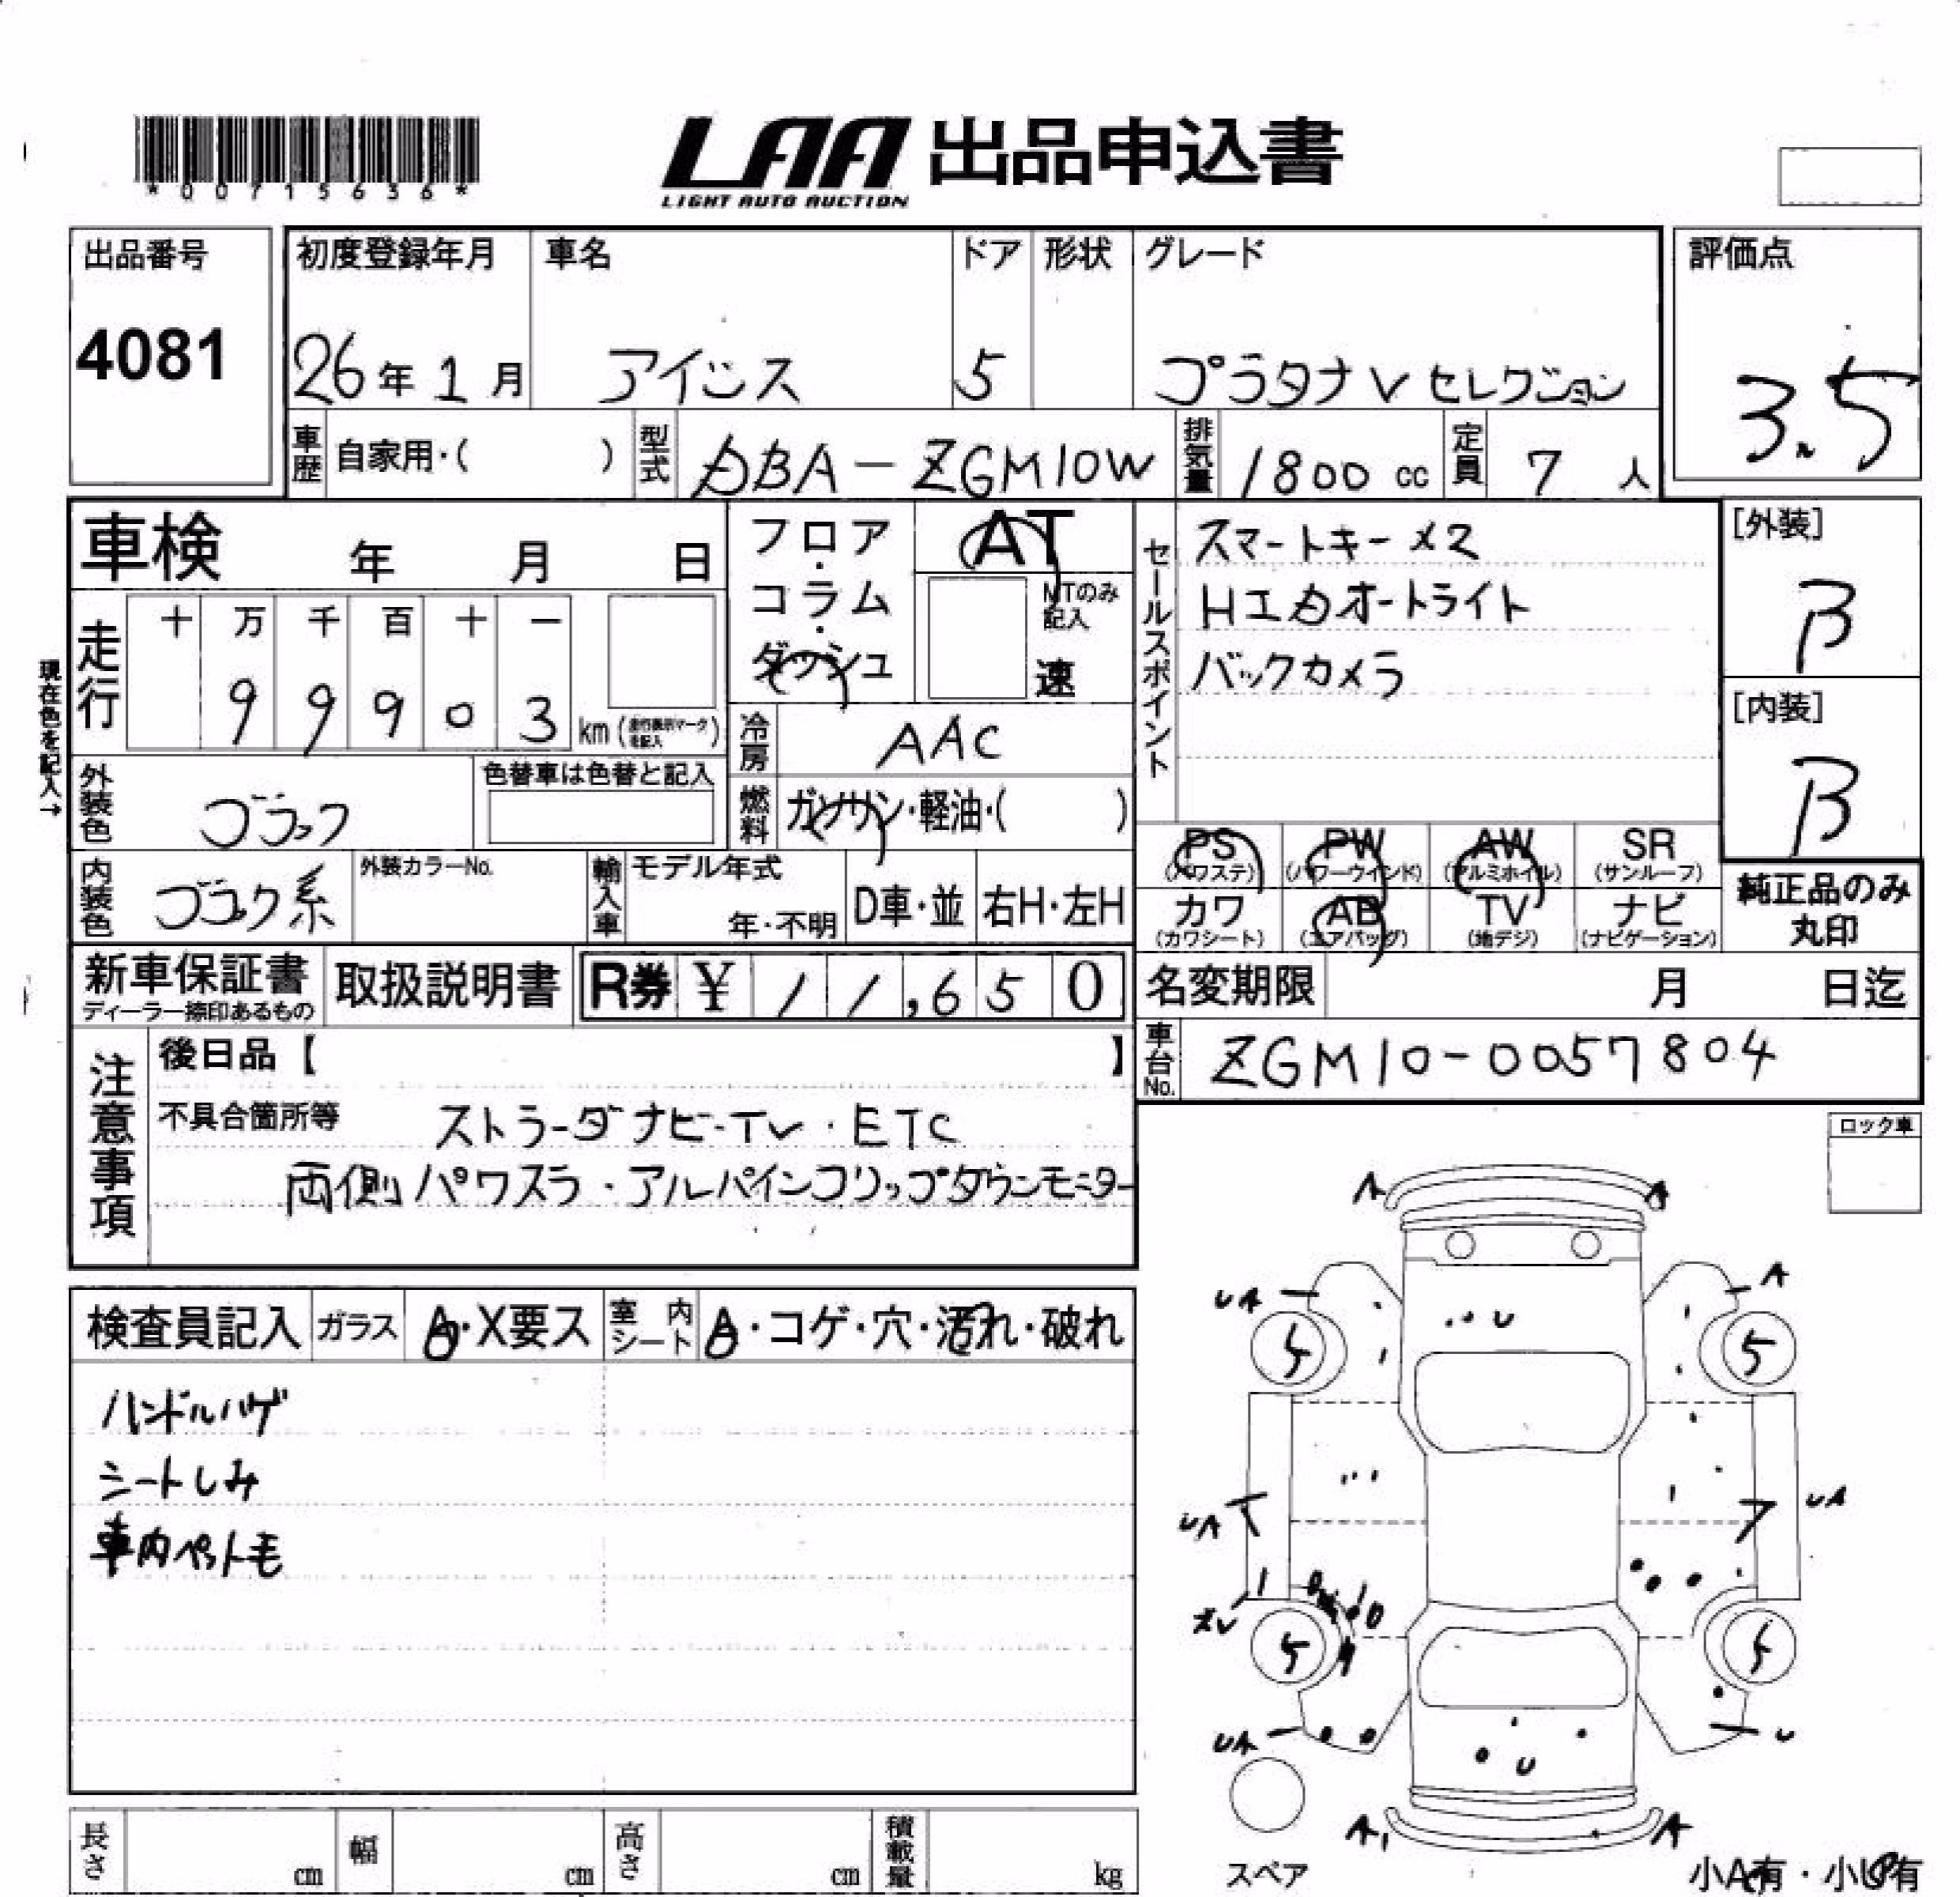 *00715636*
LAA 出品申込書
LIGHT AUTO AUCTION
出品番号
4081
初度登録年月
26年1月
車名
アイシス
ドア
5
形状
グレード
プラタナVセレクション
評価点
3.5
車歴 自家用・( )
型式 DBA-ZGM10W
排気量 1800 cc
定員 7 人
車検 年 月 日
フロア・コラム・ダッシュ
AT
MTのみ記入
速
セールスポイント
スマートキー×2
HIDオートライト
バックカメラ
[外装]
B
[内装]
B
現在色を記入→
走行
十 万 千 百 十 一
9 9 9 0 3 km (走行表示マークを記入)
冷房 AAC
外装色 ブラック
色替車は色替と記入
燃料 ガソリン・軽油・( )
PS (パワステ)
PW (パワーウィンド)
AW (アルミホイル)
SR (サンルーフ)
カワ (カワシート)
AB (エアバッグ)
TV (地デジ)
ナビ (ナビゲーション)
純正品のみ
丸印
内装色 ブラック系
外装カラーNo.
輸入車
モデル年式
年・不明
D車・並
右H・左H
新車保証書
ディーラー捺印あるもの
取扱説明書
R券 ¥ 11,650
名変期限 月 日迄
車台No. ZGM10-0057804
注意事項
後日品【 】
不具合箇所等 ストラーダナビ-TV・ETC
両側パワスラ・アルパインフリップダウンモニター
ロック車
検査員記入
ガラス A・X要ス
室内シート A・コゲ・穴・汚れ・破れ
ハンドルハゲ
シートしみ
車内ペット毛
A A
UA A
5 5
U
UA UA
5 5
UA U
U
A1 A
スペア
小A有・小U有
長さ cm
幅 cm
高さ cm
積載量 kg